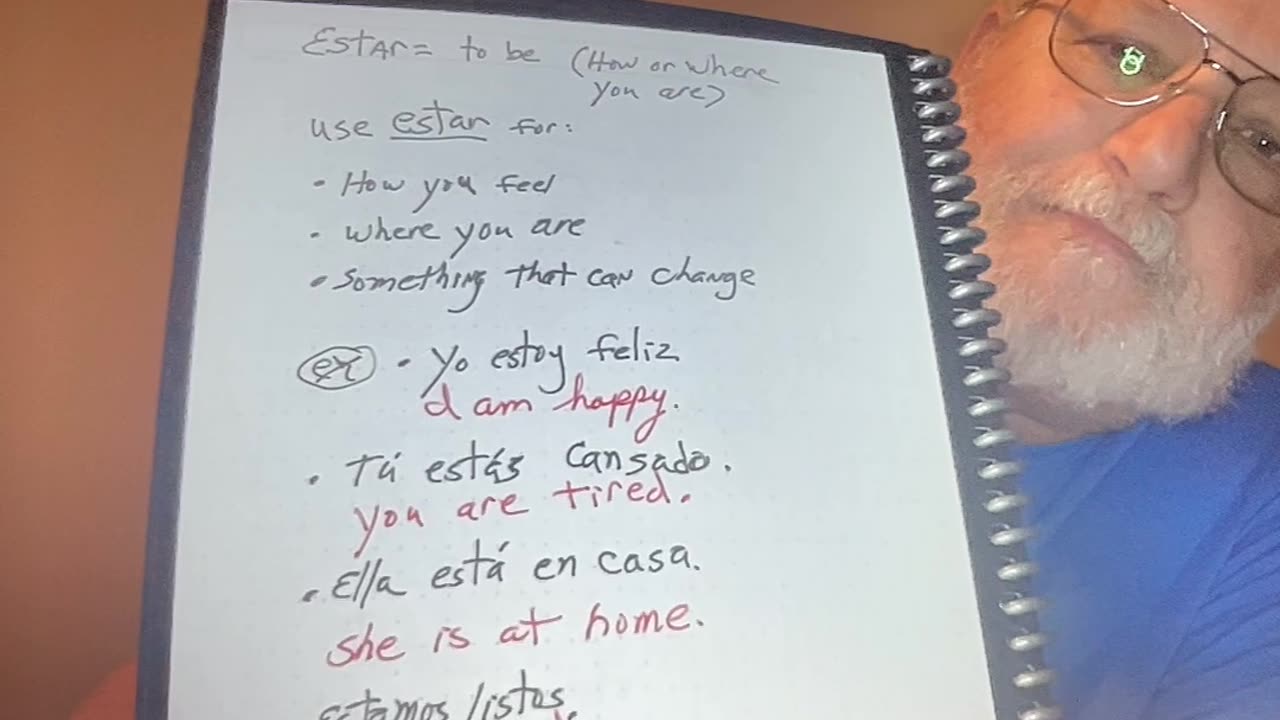 Estar = to be (How or where
you are)
use estar for:
• How you feel
• where you are
• Something that can change
ex • Yo estoy feliz
I am happy.
• Tú estás cansado.
you are tired.
• Ella está en casa.
she is at home.
estamos listos.